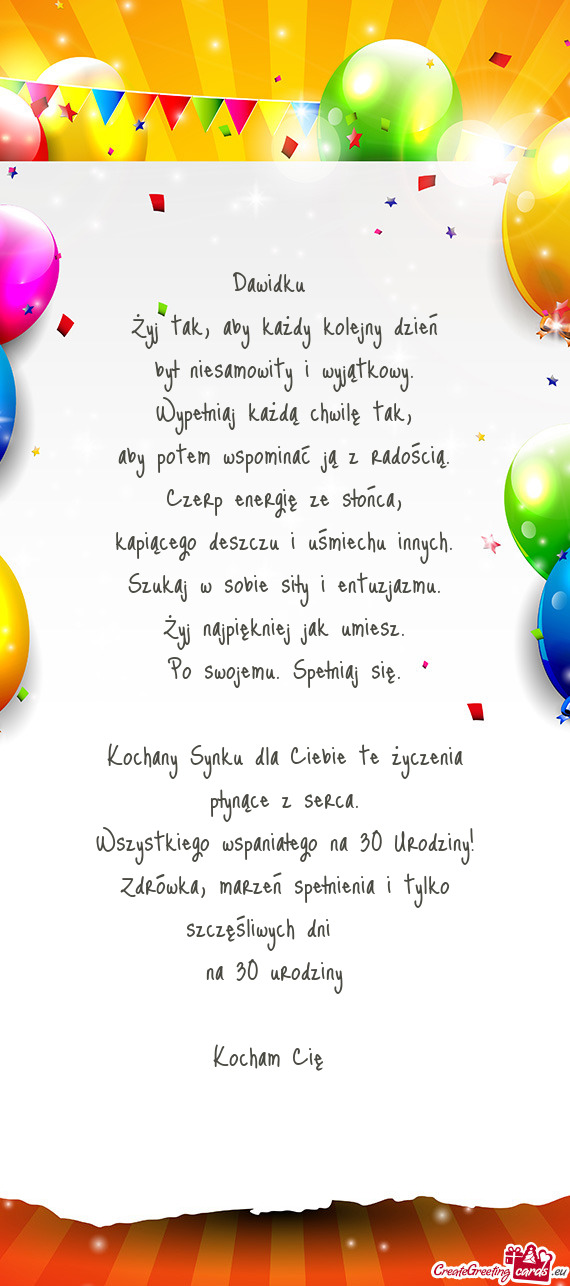 Dawidku
Żyj tak, aby każdy kolejny dzień
był niesamowity i wyjątkowy.
Wypełniaj każdą chwilę tak,
aby potem wspominać ją z radością.
Czerp energię ze słońca,
kapiącego deszczu i uśmiechu innych.
Szukaj w sobie siły i entuzjazmu.
Żyj najpiękniej jak umiesz.
Po swojemu. Spełniaj się.
Kochany Synku dla Ciebie te życzenia
płynące z serca.
Wszystkiego wspaniałego na 30 Urodziny!
Zdrówka, marzeń spełnienia i tylko
szczęśliwych dni
na 30 urodziny
Kocham Cię
CreateGreeting cards .eu